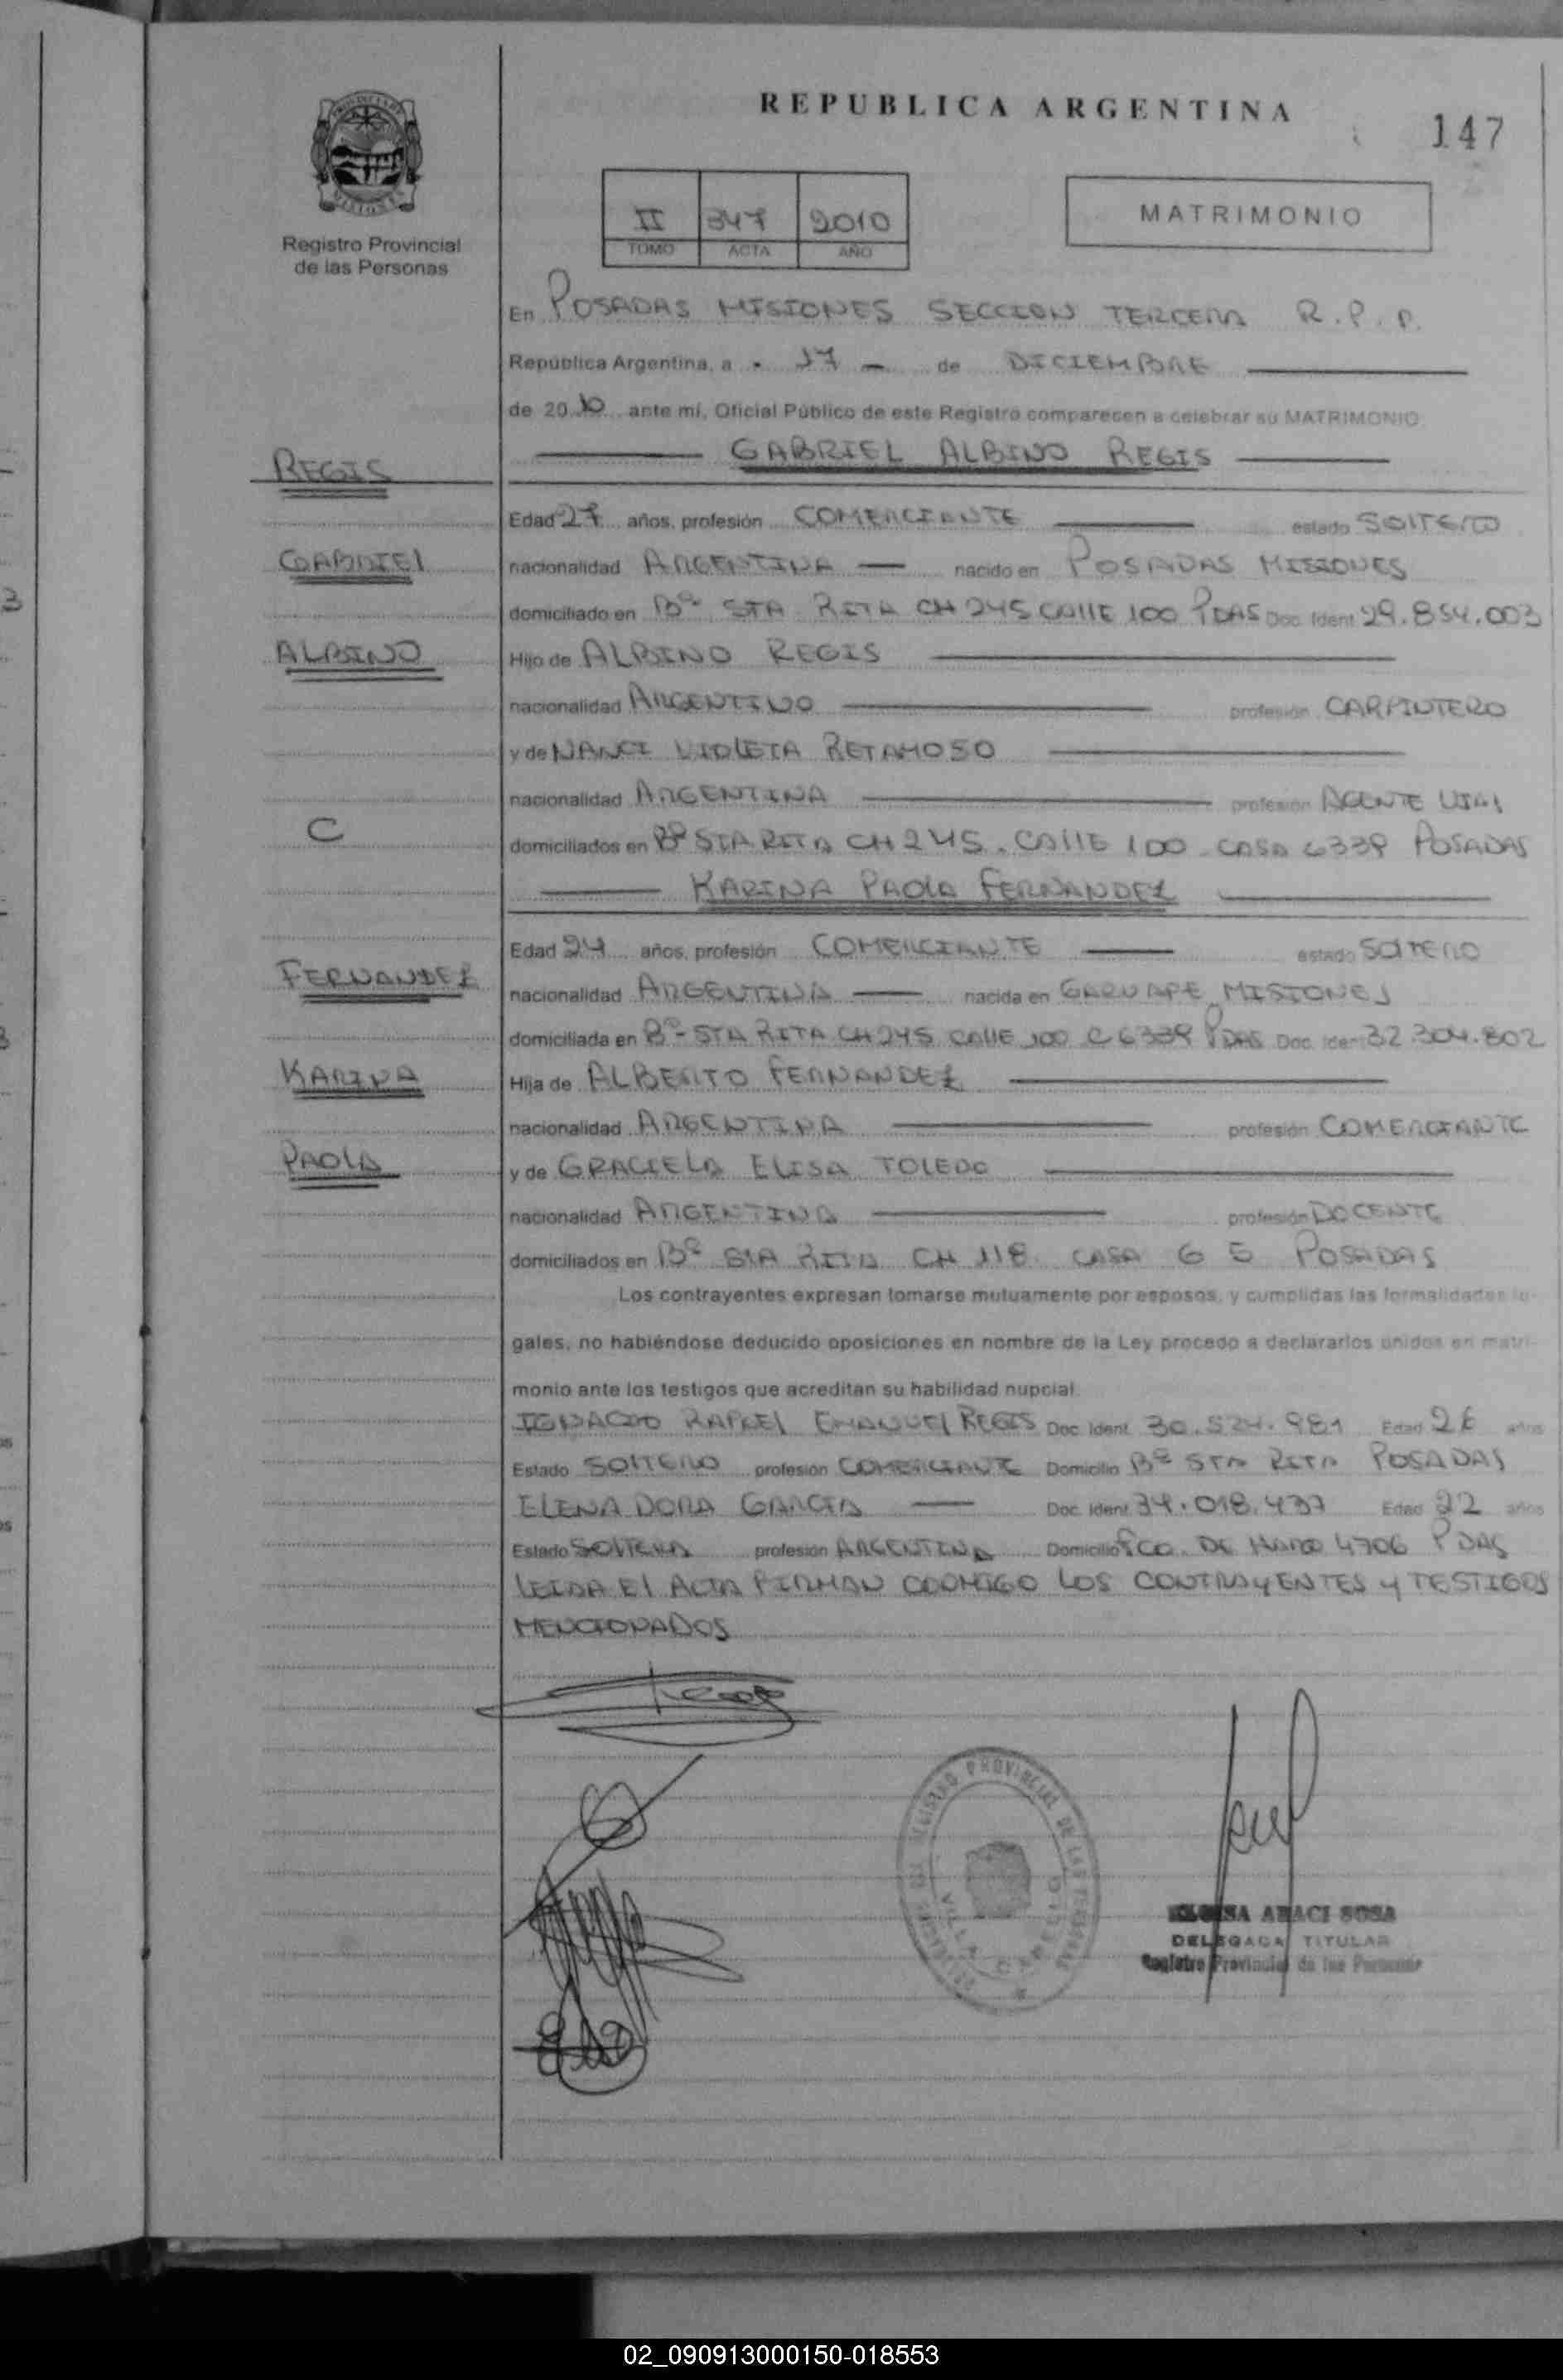 REPUBLICA ARGENTINA
147
Registro Provincial
de las Personas
II 347 2010
TOMO ACTA AÑO
MATRIMONIO
En POSADAS MISIONES SECCION TERCERA R.P.P.
República Argentina, a 17 de DICIEMBRE
de 2010 ante mí, Oficial Público de este Registro comparecen a celebrar su MATRIMONIO
GABRIEL ALBINO REGIS
REGIS
Edad 27 años, profesión COMERCIANTE estado SOLTERO
GABRIEL
nacionalidad ARGENTINA nacido en POSADAS MISIONES
domiciliado en Bº STA RITA CH 245 CALLE 100 PDAS Doc. Ident 29.854.003
ALBINO
Hijo de ALBINO REGIS
nacionalidad ARGENTINO profesión CARPINTERO
y de NANCI VIOLETA RETAMOSO
nacionalidad ARGENTINA profesión AGENTE
C
domiciliados en Bº STA RITA CH 245. CALLE 100 CASA 6339 POSADAS
KARINA PAOLA FERNANDEZ
Edad 24 años, profesión COMERCIANTE estado SOLTERO
FERNANDEZ
nacionalidad ARGENTINA nacida en GARUAPE MISIONES
domiciliada en Bº STA RITA CH 245 CALLE 100 C 6339 PDAS Doc. Iden 32.304.802
KARINA
Hija de ALBERTO FERNANDEZ
nacionalidad ARGENTINA profesión COMERCIANTE
PAOLA
y de GRACIELA ELISA TOLEDO
nacionalidad ARGENTINA profesión DOCENTE
domiciliados en Bº STA RITA CH 118 CASA 6 5 POSADAS
Los contrayentes expresan tomarse mutuamente por esposos, y cumplidas las formalidades le-
gales, no habiéndose deducido oposiciones en nombre de la Ley procedo a declararlos unidos en matri-
monio ante los testigos que acreditan su habilidad nupcial.
IGNACIO RAFAEL EMANUEL REGIS Doc. Ident. 30.524.981 Edad 26 años
Estado SOLTERO profesión COMERCIANTE Domicilio Bº STA RITA POSADAS
ELENA DORA GARCIA Doc. Ident 34.018.437 Edad 22 años
Estado SOLTERA profesión ARGENTINA Domicilio FCO. DE HARO 4706 PDAS
LEIDA El ACTA FIRMAN CONMIGO LOS CONTRAYENTES y TESTIGOS
MENCIONADOS
REGISTRO PROVINCIAL DE LAS PERSONAS
VILLA
ABACI SOSA
DELEGADA TITULAR
Registro Provincial de las Personas
02_090913000150-018553